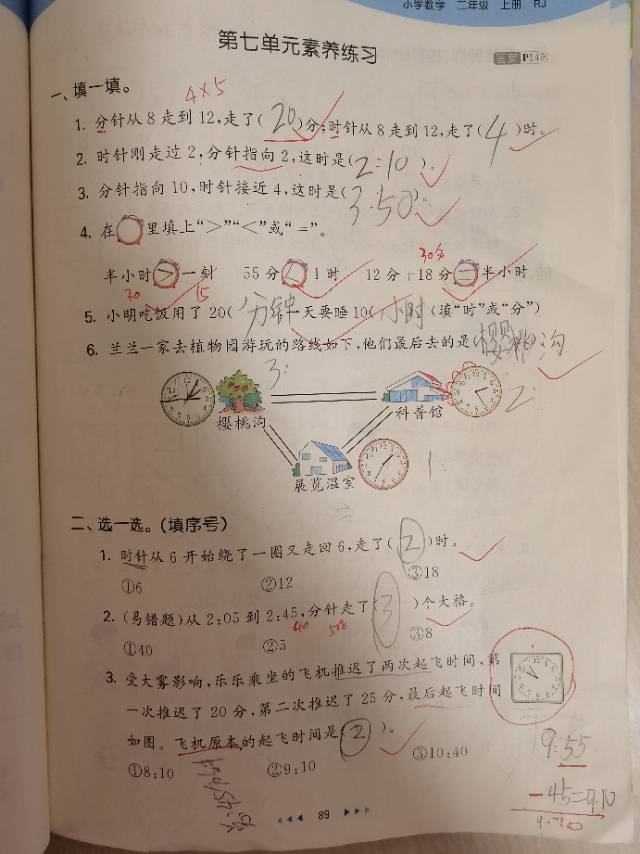 小学数学 二年级 上册 RJ
第七单元素养练习
答案 P140
一、填一填。
4×5
1. 分针从8走到12,走了(20)分;时针从8走到12,走了(4)时。
2. 时针刚走过2,分针指向2,这时是(2:10)。
3. 分针指向10,时针接近4,这时是(3:50)。
4. 在○里填上“>”“<”或“=”。
30分
半小时>一刻 55分<1时 12分+18分=半小时
30 15
5. 小明吃饭用了20(分钟)一天要睡10(小时)(填“时”或“分”)
6. 兰兰一家去植物园游玩的路线如下,他们最后去的是(樱桃沟
3:
樱桃沟
科普馆
2:
展览温室
1:
二、选一选。(填序号)
1. 时针从6开始绕了一圈又走回6,走了(2)时。
①6 ②12 ③18
2. (易错题)从2:05到2:45,分针走了(3)个大格。
40 5×8
①40 ②5 ③8
3. 受大雾影响,乐乐乘坐的飞机推迟了两次起飞时间,第
一次推迟了20分,第二次推迟了25分,最后起飞时间
如图。飞机原本的起飞时间是(2)。
①8:10 ②9:10 ③10:40
9:55
-45=9:10
9:10
89